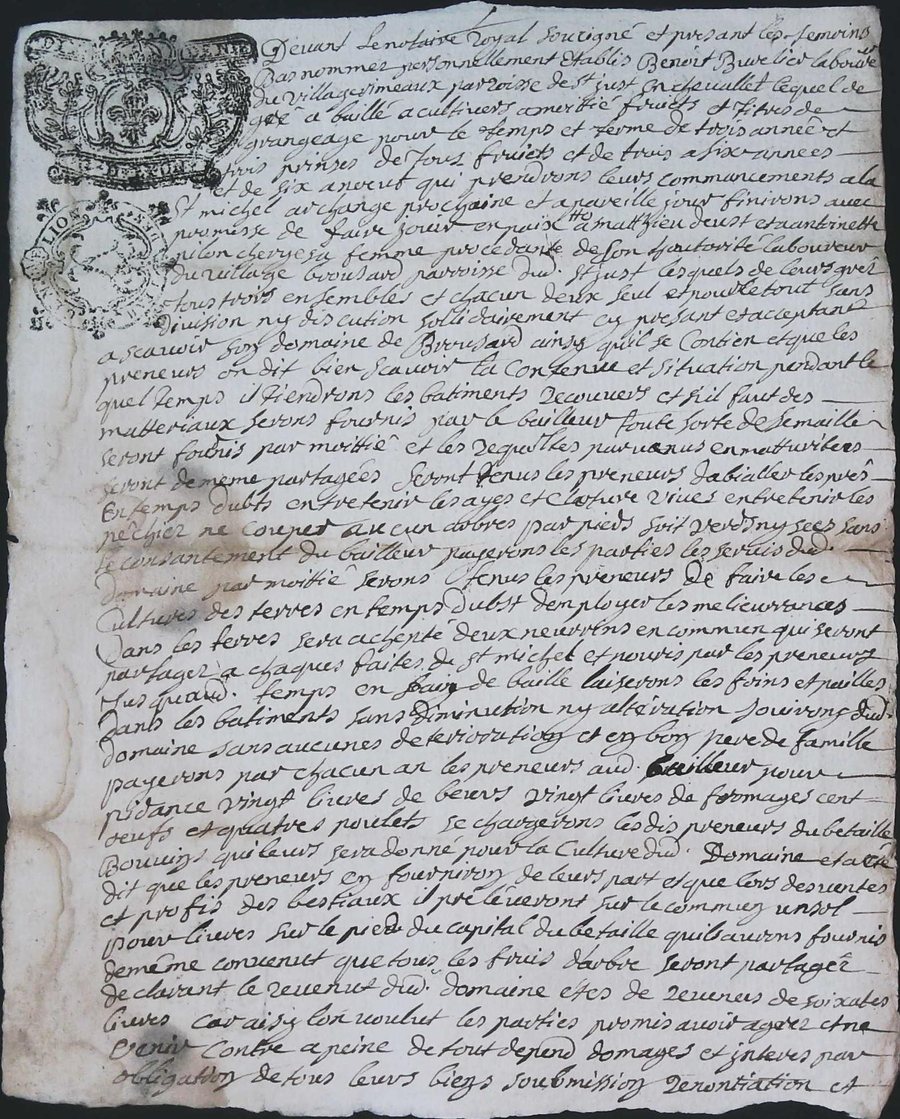 DIX DENIE
G. DE LYON
LION
Devant Le notaire Royal soucigné et presant les temoins
Bas nommez personnellement Etablis Benoit Burelier laboure
du village rimeaux parroisse de St just En chevallet lequel de
gré a baillé a cultivers a moitié fruicts et titres de
grangeage pour le temps et terme de trois année et
trois prinses de tous fruicts et de trois a six années
et de six a neuf qui prendrons leurs commancements a la
St michel archange prochaine et a pareille jour finirons avec
promisse de faire jouir en paix a matthieu et antoinette
sa femme procedante de son hautorité laboureur
du village brousard parroisse dud. St just lesquels de leurs grez
tous trois ensembles et chacun deux seul et pour le tout sans
division ny discution sollidairement cy presant et acceptant
a scavoir son domaine de Broussard ainsy quil se contien et que les
preneurs on dit bien scavoir la contenue et situation pendant le
quel temps il tiendrons les batiments recouvers et sil faut des
matteriaux serons fournis par le bailleur toute sorte de semaille
seront fournis par moittié et les requiltes parvenus en matturittes
seront de meme partagées seront tenus les preneurs dabialler les prés
En temps dubts entretenir les ayes et clature vives entretenir les
pêchier ne couper aucun arbres par pieds soit verds ny secs sans
le consantement du bailleur payerons les parties les servis dud.
domaine par moittié serons tenus les preneurs de faire les
Cultures des terres en temps dubst denployer les melieurrances
Dans les terres sera achenté deux neurrins en commun qui seront
partagez a chaques faites de St michel et nouris par les preneurs
jus quaud. temps en fain de baille laiserons les foins et pailles
dans les batiments sans diminution ny altération jouirons dud.
domaine sans aucunes deteriorration et en bon pere de famille
payerons par chacun an les preneurs aud. bailleur pour
pidance vingt livres de beurs vingt livres de fromages cent
oeufs et quatres poulets se chargerons les dis preneurs du betaille
Bouvins qui leurs sera donne pour la Culture dud. Domaine et a été
dit que les preneurs en fourniron de leurs part et que lors des ventes
et profis des bestiaux il prelèveront sur le commun un sol
pour livres sur le pied du capital du betaille quils aurons fournis
demême convenut que tous les fruis darbre seront partager
declarant le revenut dud. domaine etes de revenus de soixates
livres car aisy lon voulut les parties promis avoir agrez et ne
venir contre a peine de tout depend domages et interes par
obligation de tous leurs biens soubmission renontiation et